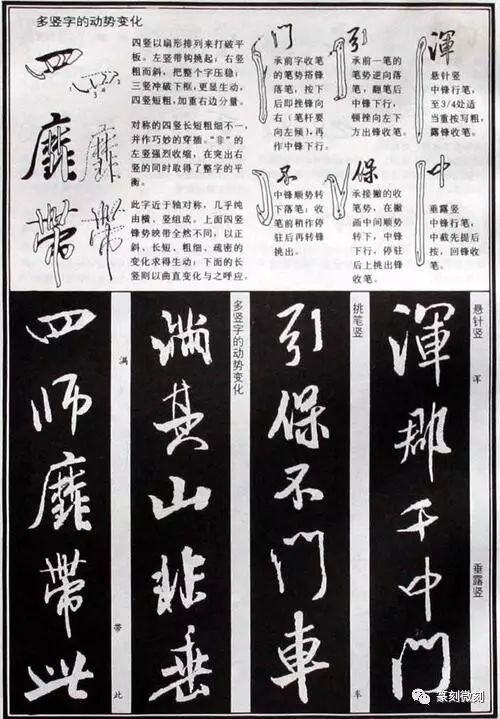 多竖字的动势变化
四
四竖以扇形排列来打破平
板。左竖带钩挑起；右竖
粗而斜，把整个字压稳；
三竖冲破下框，更显生动，
四竖短粗，加重右边分量。
1
2
3
4
靡
对称的四竖长短粗细不一，
并作巧妙的穿插。“非”的
左竖强烈收缩，在突出右
竖的同时取得了整字的平
衡。
帶
此字近于轴对称，几乎纯
由横、竖组成。上面四竖
锋势映带全然不同，以正
斜、长短、粗细、疏密的
变化求得生动；下面的长
竖则以曲直变化与之呼应。
门
承前字收笔
的笔势搭锋
落笔，按下
后即挫锋向
右（笔杆要
向左倾），再
作中锋下行。
引
承前一笔的
笔势逆向落
笔，翻笔后
中锋下行，
顿挫向左下
方出锋收笔。
渾
悬针竖
中锋行笔，
至3/4处适
当重按写粗，
露锋收笔。
不
中锋顺势转
下落笔；收
笔前稍作停
驻后再转锋
挑出。
保
承接撇的收
笔势，在撇
画中间顺势
转下，中锋
下行，停驻
后上挑出锋
收笔。
中
垂露竖
中锋行笔，
中截先提后
按，回锋收
笔。
悬针竖
浑
垂露竖
渾郡千中門
挑笔竖
车
引保不門車
多竖字的动势变化
滿其山非垂
满
带
此
四师靡帶此
篆刻微刻